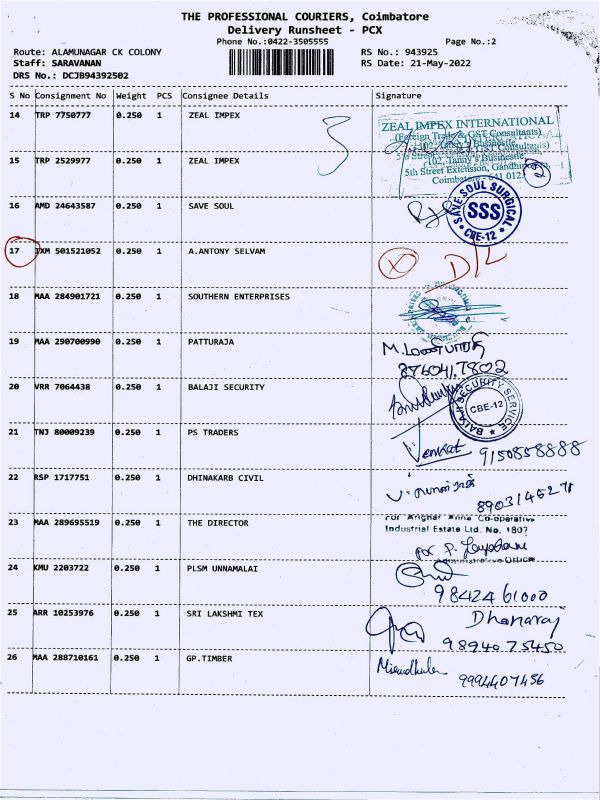 THE PROFESSIONAL COURIERS, Coimbatore
Delivery Runsheet - PCX
Phone No.:0422-3505555 Page No.:2
Route: ALAMUNAGAR CK COLONY RS No.: 943925
Staff: SARAVANAN RS Date: 21-May-2022
DRS No.: DCJB94392502
S No Consignment No Weight PCS Consignee Details Signature
14 TRP 7750777 0.250 1 ZEAL IMPEX
3
ZEAL IMPEX INTERNATIONAL
(Foreign Trade & GST Consultants)
15 TRP 2529977 0.250 1 ZEAL IMPEX
102, Tanny's Businestle,
5th Street Extension, Gandhipuram,
Coimbatore - 641 012.
2
16 AMD 24643587 0.250 1 SAVE SOUL
SAVE SOUL SURGICAL
SSS
* CBE-12 *
17 TXM 501521052 0.250 1 A.ANTONY SELVAM
X D/L
18 MAA 284901721 0.250 1 SOUTHERN ENTERPRISES
19 MAA 290700990 0.250 1 PATTURAJA
20 VRR 7064438 0.250 1 BALAJI SECURITY
BALAJI SECURITY SERVICE
CBE-12
21 TNJ 80009239 0.250 1 PS TRADERS
Venkat 9150858888
22 RSP 1717751 0.250 1 DHINAKARB CIVIL
23 MAA 289695519 0.250 1 THE DIRECTOR
Industrial Estate Ltd. No. 1807
Administrative Officer
24 KMU 2203722 0.250 1 PLSM UNNAMALAI
98424 61000
25 ARR 10253976 0.250 1 SRI LAKSHMI TEX
Dhanaraj
98940 75450
26 MAA 288710161 0.250 1 GP.TIMBER
9994407456